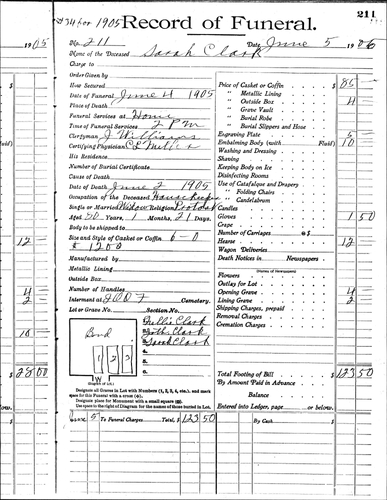 211
# 34 for 1905 Record of Funeral.
1905
No. 211 Date June 5 1905
Name of the Deceased Sarah Clark
Charge to
Order Given by
How Secured
Date of Funeral June 4 1905
Place of Death
Funeral Services at Home
Time of Funeral Services 2 P m
Clergyman J Williams
Certifying Physician
His Residence
Number of Burial Certificate
Cause of Death
Date of Death June 2 1905
Occupation of the Deceased House Keeper
Single or Married Widow Religion
Aged 80 Years, 1 Months, 21 Days.
Body to be shipped to
Size and Style of Casket or Coffin 6-0
Manufactured by
Metallic Lining
Outside Box
Number of Handles
Interment at I O O F Cemetery.
Lot or Grave No. Section No.
Road
1 2 3
W
(Diagram of Lot.)
Clark
Clark
Sarah Clark
Designate all Graves in Lot with Numbers (1, 2, 3, 4, etc.), and mark
space for this Funeral with a cross (+).
Designate place for Monument with a small square (□).
Use space to right of Diagram for the names of those buried in Lot.
Price of Casket or Coffin $ 85
" Metallic Lining
" Outside Box 4
" Grave Vault
" Burial Robe
" Burial Slippers and Hose
Engraving Plate 5
Embalming Body (with Fluid) 10
Washing and Dressing
Shaving
Keeping Body on Ice
Disinfecting Rooms
Use of Catafalque and Drapery
" Folding Chairs
" Candelabrum
Candles
Gloves 1 50
Crape
Number of Carriages @ $
Hearse 12
Wagon Deliveries
Death Notices in Newspapers
(Names of Newspapers)
Flowers
Outlay for Lot
Opening Grave 4
Lining Grave 2
Shipping Charges, prepaid
Removal Charges
Cremation Charges
Total Footing of Bill 123 50
By Amount Paid in Advance
Balance
Entered into Ledger, page or below.
June 5 To Funeral Charges Total, $ 123 50 By Cash $
12
4
2
10
28 00